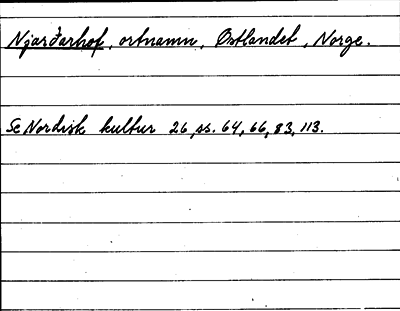 Njarðarhof, ortnamn, Østlandet, Norge.
Se Nordisk kultur 26, ss. 64, 66, 83, 113.